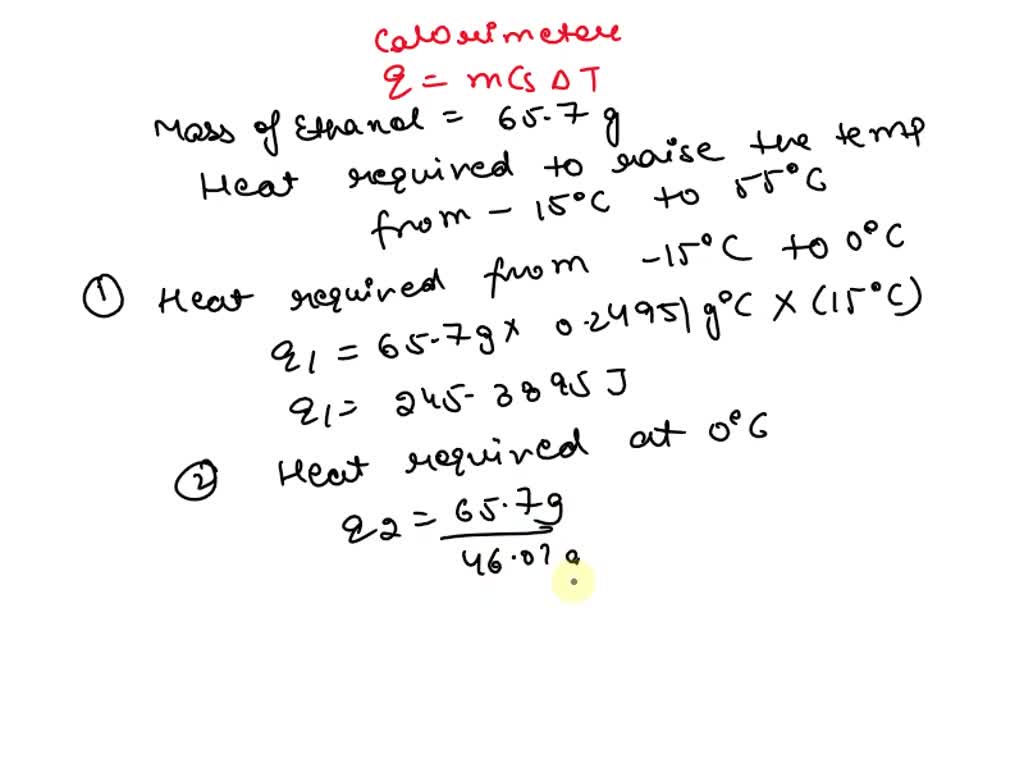 Calorimeter
q = mCsΔT
Mass of Ethanol = 65.7 g
Heat required to raise the temp
from - 15°C to 55°C
① Heat required from -15°C to 0°C
q1 = 65.7g x 0.2495/g°C x (15°C)
q1 = 245.3895 J
② Heat required at 0°C
q2 = 65.7g
46.07 g